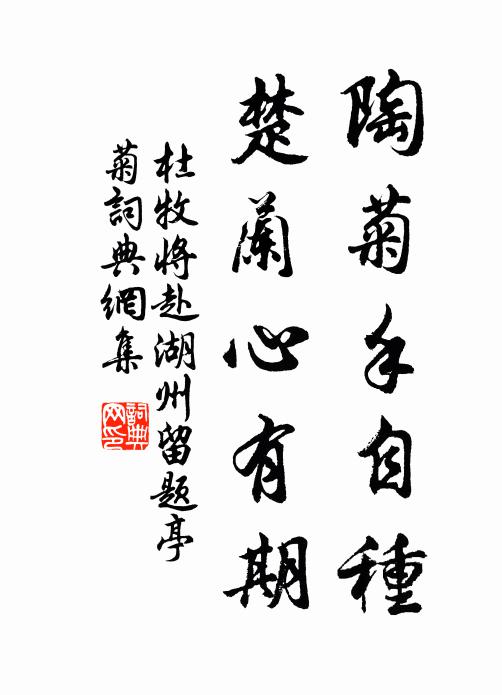 陶菊手自種
楚蘭心有期
杜牧將赴湖州留題亭
菊詞典網集
詞典
网印